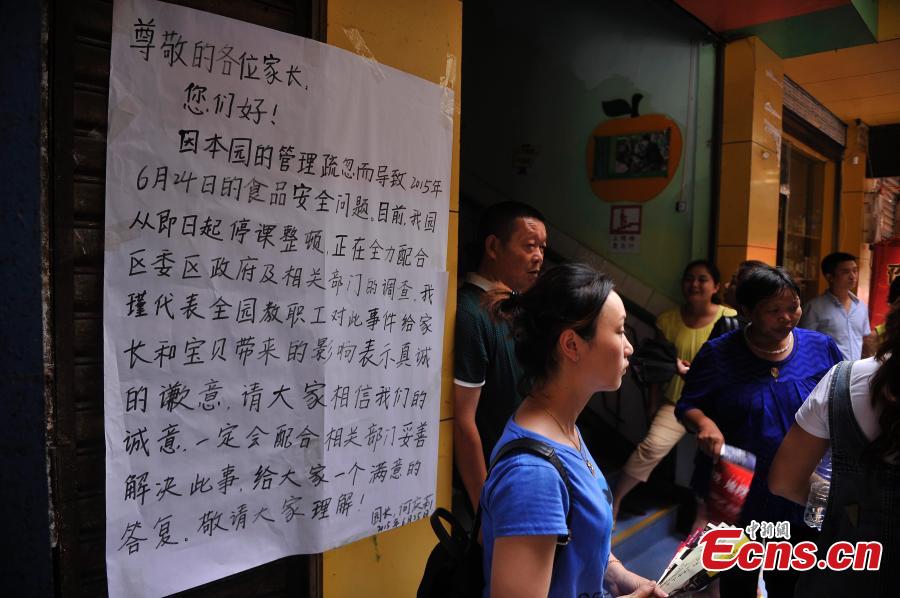 尊敬的各位家长,
您们好!
因本园的管理疏忽而导致2015年
6月24日的食品安全问题。目前,我园
从即日起停课整顿,正在全力配合
区委区政府及相关部门的调查,我
瑾代表全园教职工对此事件给家
长和宝贝带来的影响表示真诚
的歉意,请大家相信我们的
诚意,一定会配合相关部门妥善
解决此事,给大家一个满意的
答复。敬请大家理解!
园长:何
2015年6月25日
中新网
Ecns.cn